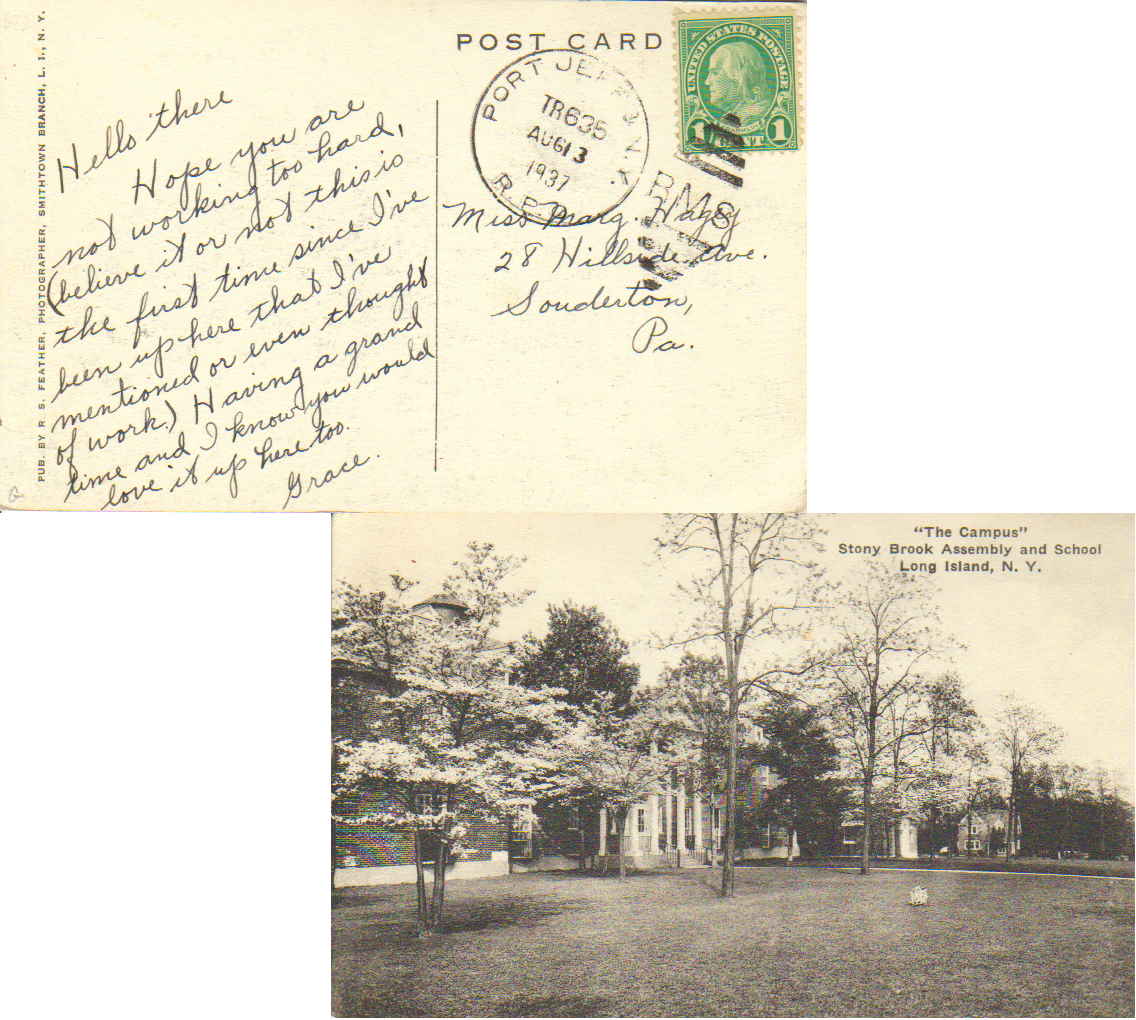 PUB. BY R. S. FEATHER, PHOTOGRAPHER, SMITHTOWN BRANCH, L. I., N. Y.
Hello there
Hope you are
not working too hard,
(believe it or not this is
the first time since I've
been up here that I've
mentioned or even thought
of work.) Having a grand
time and I know you would
love it up here too.
Grace.
POST CARD
UNITED STATES POSTAGE
1 CENT 1
PORT JEFF & N.Y.
TR635
AUG 13
1937
R.P.O.
RMS
Miss Marg. Hagey
28 Hillside Ave.
Souderton,
Pa.
"The Campus"
Stony Brook Assembly and School
Long Island, N. Y.